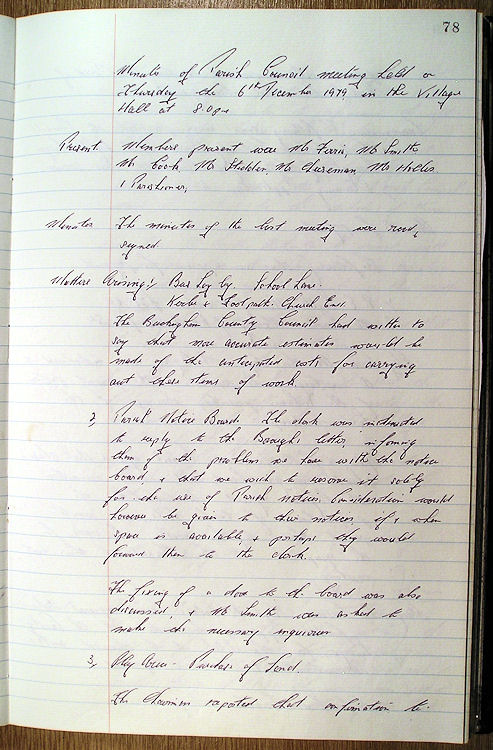 78
Minutes of Parish Council meeting held on
Thursday the 6th December 1979 in the Village
Hall at 8.0pm
Present Members present were Mr Ferris, Mr Smith
Mr Cook, Mr Mr Chireman, Mr Hollis
1 Parishioner,
Minutes The minutes of the last meeting were read,
signed
Matters Arising 1, Bus Lay by. School Lane.
Kerbs & Footpath. Church End.
The Buckingham County Council had written to
say that more accurate estimates would be
made of the anticipated costs for carrying
out these items of work.
2, Parish Notice Board. The clerk was instructed
to reply to the Boroughs letter informing
them of the problem we have with the notice
board & that we wish to reserve it solely
for the use of Parish notices. Consideration would
however be given to their notices if & when
space is available, & perhaps they would
forward them to the clerk.
The fixing of a door to the board was also
discussed, & Mr Smith was asked to
make the necessary inquiries
3, Play Area - Purchase of Land.
The Chairman reported that confirmation to